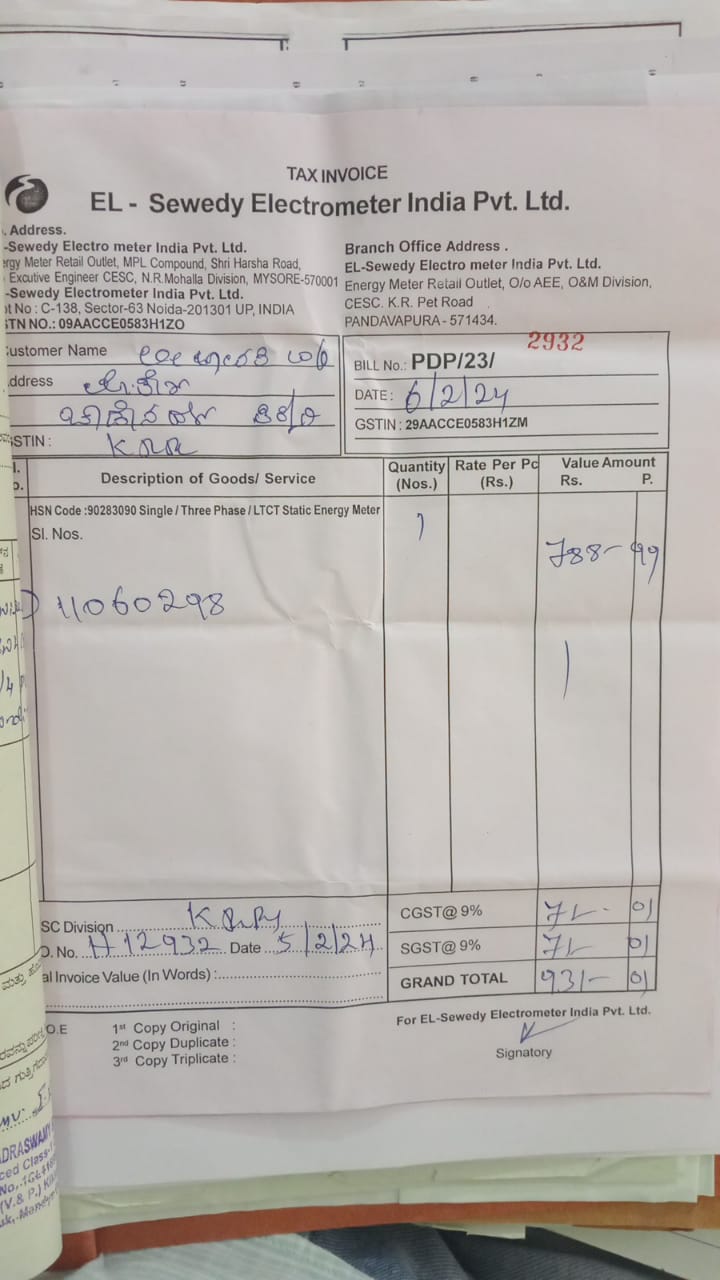 TAX INVOICE
EL - Sewedy Electrometer India Pvt. Ltd.
. Address.
-Sewedy Electro meter India Pvt. Ltd.
ergy Meter Retail Outlet, MPL Compound, Shri Harsha Road,
Excutive Engineer CESC, N.R.Mohalla Division, MYSORE-570001
-Sewedy Electrometer India Pvt. Ltd.
ot No : C-138, Sector-63 Noida-201301 UP, INDIA
STN NO.: 09AACCE0583H1ZO
Branch Office Address .
EL-Sewedy Electro meter India Pvt. Ltd.
Energy Meter Retail Outlet, O/o AEE, O&M Division,
CESC. K.R. Pet Road
PANDAVAPURA - 571434.
Customer Name
ddress
STIN :
2932
BILL No.: PDP/23/
DATE : 6/2/24
GSTIN : 29AACCE0583H1ZM
Description of Goods/ Service
Quantity (Nos.)
Rate Per Pc (Rs.)
Value Amount
Rs. P.
HSN Code :90283090 Single / Three Phase / LTCT Static Energy Meter
Sl. Nos.
1
788- 99
11060298
SC Division
O. No. H12932 Date 5/2/24
al Invoice Value (In Words) :
CGST@ 9% 71- 01
SGST@ 9% 71- 01
GRAND TOTAL 931- 01
For EL-Sewedy Electrometer India Pvt. Ltd.
Signatory
O.E
1st Copy Original :
2nd Copy Duplicate :
3rd Copy Triplicate :